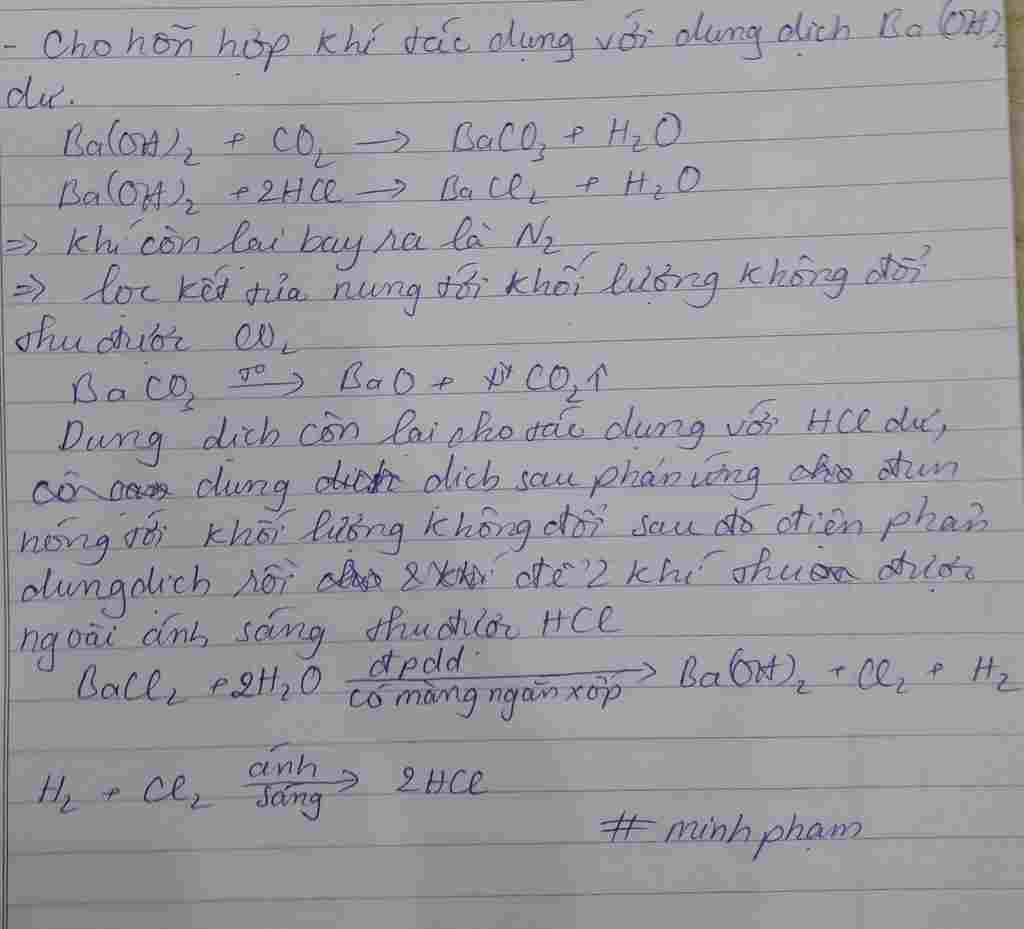 - Cho hỗn hợp khí tác dụng với dung dịch Ba(OH)2
dư.
Ba(OH)2 + CO2 → BaCO3 + H2O
Ba(OH)2 + 2HCl → BaCl2 + H2O
⇒ Khí còn lại bay ra là N2
⇒ lọc kết tủa nung tới khối lượng không đổi
thu được CO2
BaCO3 T° → BaO + CO2↑
Dung dịch còn lại cho tác dụng với HCl dư,
cô dung dịch sau phản ứng đun
nóng tới khối lượng không đổi sau đó điện phân
dung dịch rồi để 2 khí thu được
ngoài ánh sáng thu được HCl
BaCl2 + 2H2O đpdd có màng ngăn xốp → Ba(OH)2 + Cl2 + H2
H2 + Cl2 ánh sáng → 2HCl
# minh pham